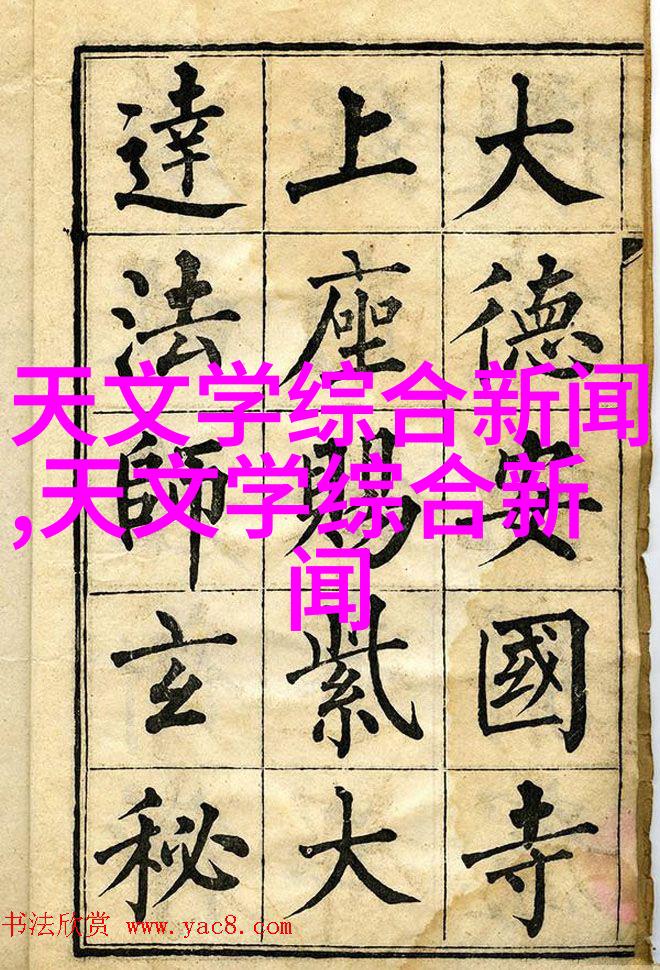 大德安國寺
上座賜紫大
達法師玄秘
天文学综合新闻
,天文学综合新
闻
书法欣赏 www.yac8.com